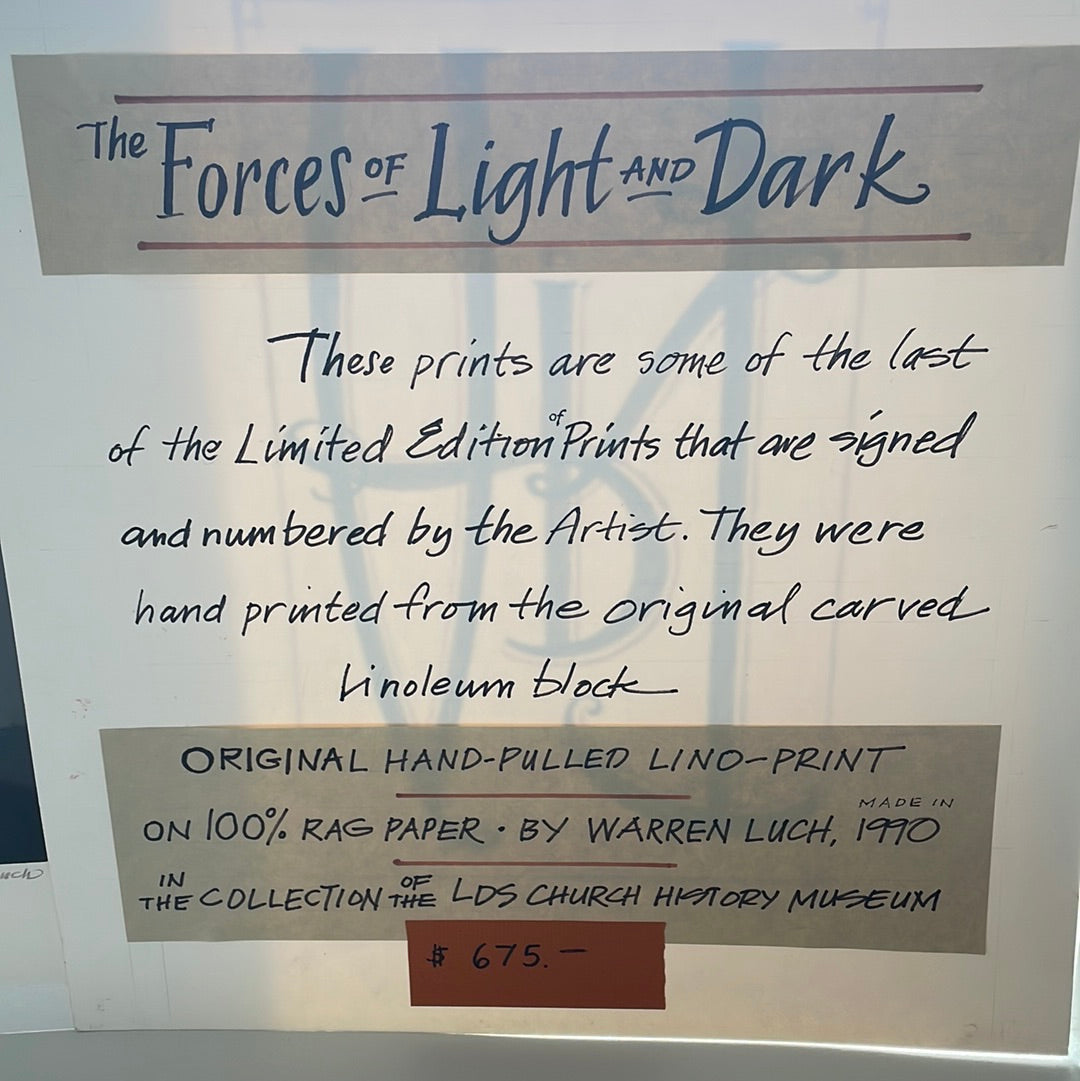 The Forces OF Light AND Dark
These prints are some of the last
of the Limited Edition of Prints that are signed
and numbered by the Artist. They were
hand printed from the original carved
linoleum block
ORIGINAL HAND-PULLED LINO-PRINT
ON 100% RAG PAPER · BY WARREN LUCH, MADE IN 1990
IN THE COLLECTION OF THE LDS CHURCH HISTORY MUSEUM
$ 675.—